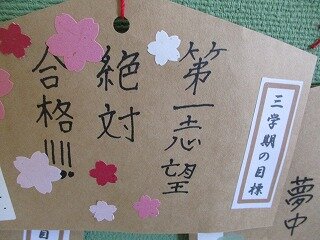 三学期の目標
第一志望
絶対
合格!!!!
夢中